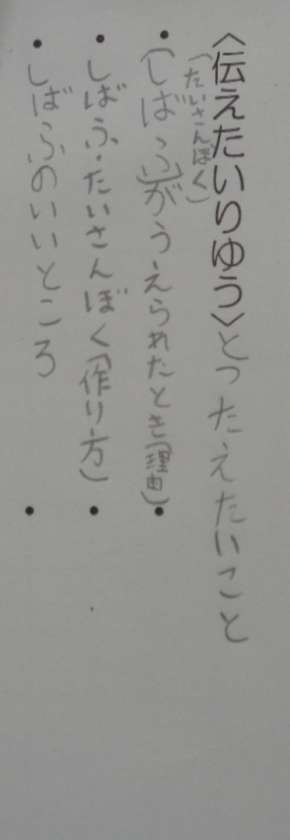 〈伝えたいりゆう〉とつたえたいこと
(たいさんぼく)
・(しばふ)がうえられたとき(理由)・
・しばふ・たいさんぼく(作り方)・
・しばふのいいところ・